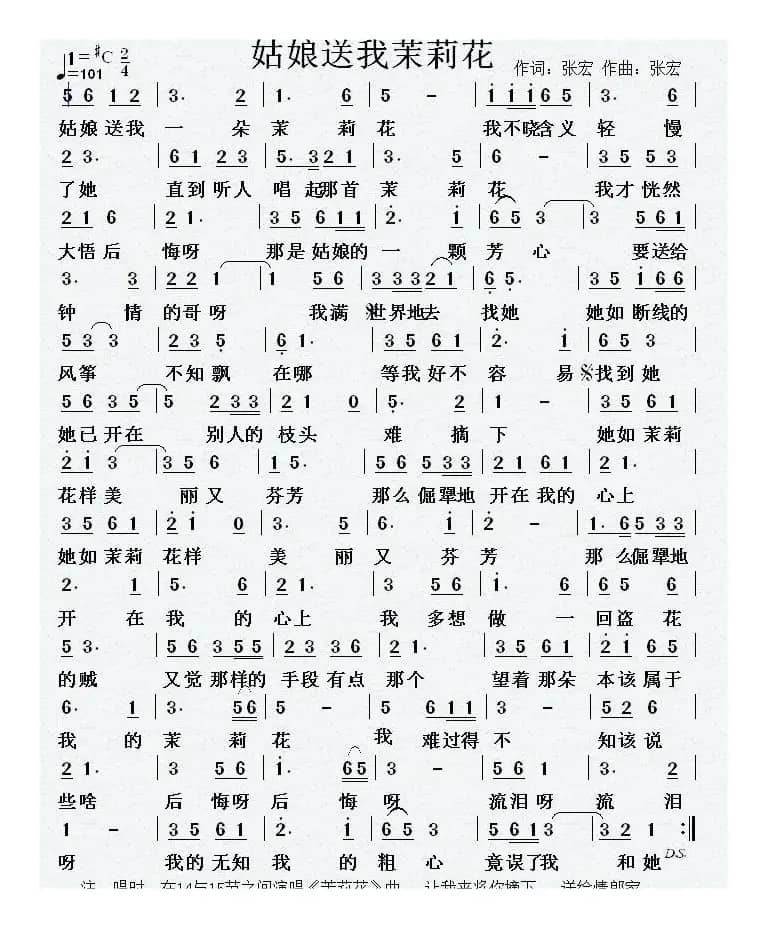 姑娘送我茉莉花
1=#C 2/4
♩=101
作词：张宏 作曲：张宏
5 6 1 2 | 3· 2 | 1· 6 | 5 - | i i i 6 5 | 3· 6 |
姑娘送我 一 朵 茉 莉 花 我不晓含义 轻 慢
2 3· | 6 1 2 3 | 5· 3 2 1 | 3· 5 | 6 - | 3 5 5 3 |
了她 直到听人 唱起那首 茉 莉 花 我才恍然
2 1 6 | 2 1· | 3 5 6 1 1 | 2· i | 6 5 3 | 3 5 6 1 |
大悟后 悔呀 那是姑娘的 一 颗 芳 心 要送给
3· 3 | 2 2 1 | 1 5 6 | 3 3 3 2 1 | 6 5· | 3 5 i 6 6 |
钟 情 的哥呀 我满 世界地去 找她 她如断线的
5 3 3 | 2 3 5 | 6 1· | 3 5 6 1 | 2· i | 6 5 3 |
风筝 不知飘 在哪 等我好不 容 易 找到她
5 6 3 5 | 5 2 3 3 | 2 1 0 | 5· 2 | 1 - | 3 5 6 1 |
她已开在 别人的 枝头 难 摘 下 她如茉莉
2 i 3 | 3 5 6 | 1 5· | 5 6 5 3 3 | 2 1 6 1 | 2 1· |
花样美 丽又 芬芳 那么倔犟地 开在我的 心上
3 5 6 1 | 2 i 0 | 3· 5 | 6· i | 2 - | 1· 6 5 3 3 |
她如茉莉 花样 美 丽 又 芬 芳 那么倔犟地
2· 1 | 5· 6 | 2 1· | 3 5 6 | i· 6 | 6 5 6 |
开 在 我 的 心上 我 多想 做 一 回盗 花
5 3· | 5 6 3 5 5 | 2 3 3 6 | 2 1· | 3 5 6 1 | 2 i 6 5 |
的贼 又觉那样的 手段有点 那个 望着那朵 本该属于
6· 1 | 3· 5 6 | 5 - | 5 6 1 1 | 3 - | 5 2 6 |
我 的 茉 莉 花 我 难过得 不 知该说
2 1· | 3 5 6 | i· 6 5 | 3 - | 5 6 1 | 3· 2 |
些啥 后 悔呀 后 悔 呀 流泪呀 流 泪
1 - | 3 5 6 1 | 2· i | 6 5 3 | 5 6 1 3 | 3 2 1 :‖
呀 我的无知 我 的 粗 心 竟误了我 和她
D.S.
注：唱时，在14与15节之间演唱《茉莉花》曲，让我来将你摘下， 送给情郎家